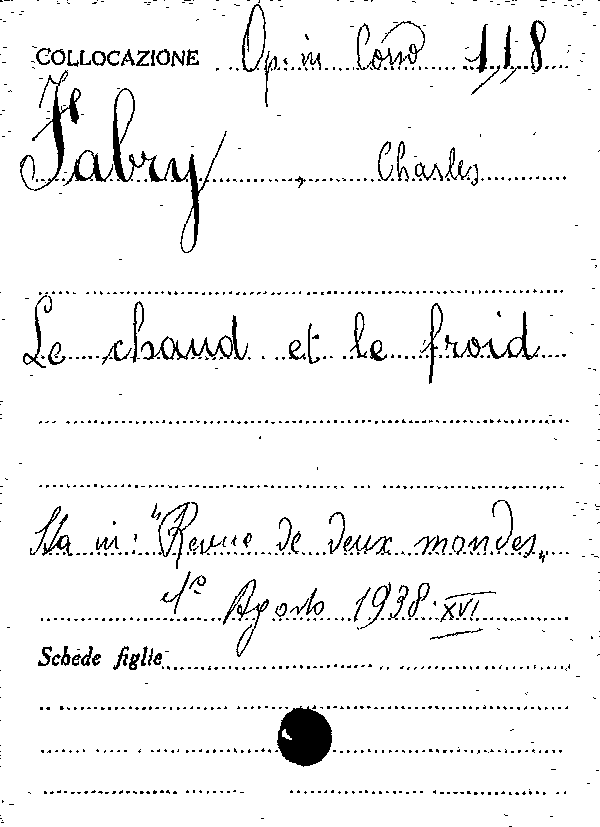 COLLOCAZIONE Op. in Corso 118
Fabry, Charles
Le chaud et le froid
Sta in: "Revue de deux mondes„
1º Agosto 1938·XVI
Schede figlie